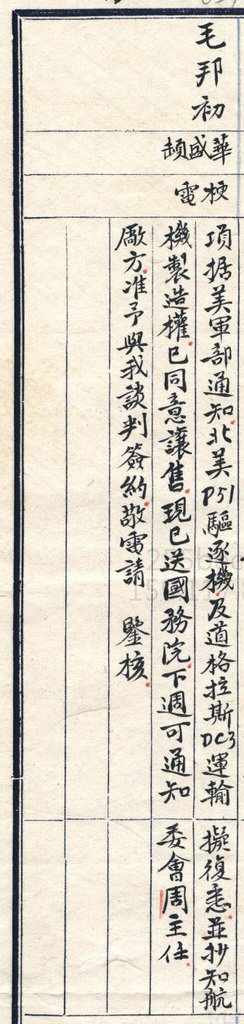 毛邦初
華盛頓
梗電
頃据美軍部通知北美P51驅逐機及道格拉斯DC3運輸
機製造權已同意讓售現已送國務院下週可通知
廠方准予與我談判簽約敬電請　鑒核
擬復悉並抄知航
委會周主任